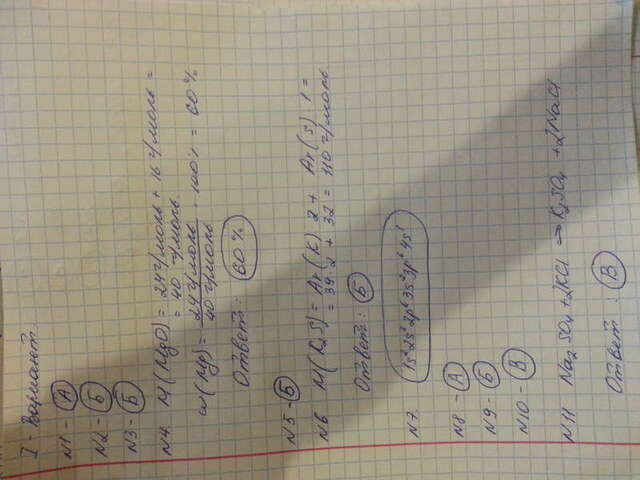 I - Вариант
N1 - А
N2 - Б
N3 - Б
N4 M(MgO) = 24 г/моль + 16 г/моль =
= 40 г/моль
ω(Mg) = 24 г/моль / 40 г/моль · 100% = 60%
Ответ: 60%
N5 - Б
N6 M(K₂S) = Ar(K) · 2 + Ar(S) · 1 =
= 39 · 2 + 32 = 110 г/моль
Ответ: Б
N7 1s² 2s² 2p⁶ 3s² 3p⁶ 4s¹
N8 - А
N9 - Б
N10 - В
N11 Na₂SO₄ + 2KCl → K₂SO₄ + 2NaCl
Ответ: В